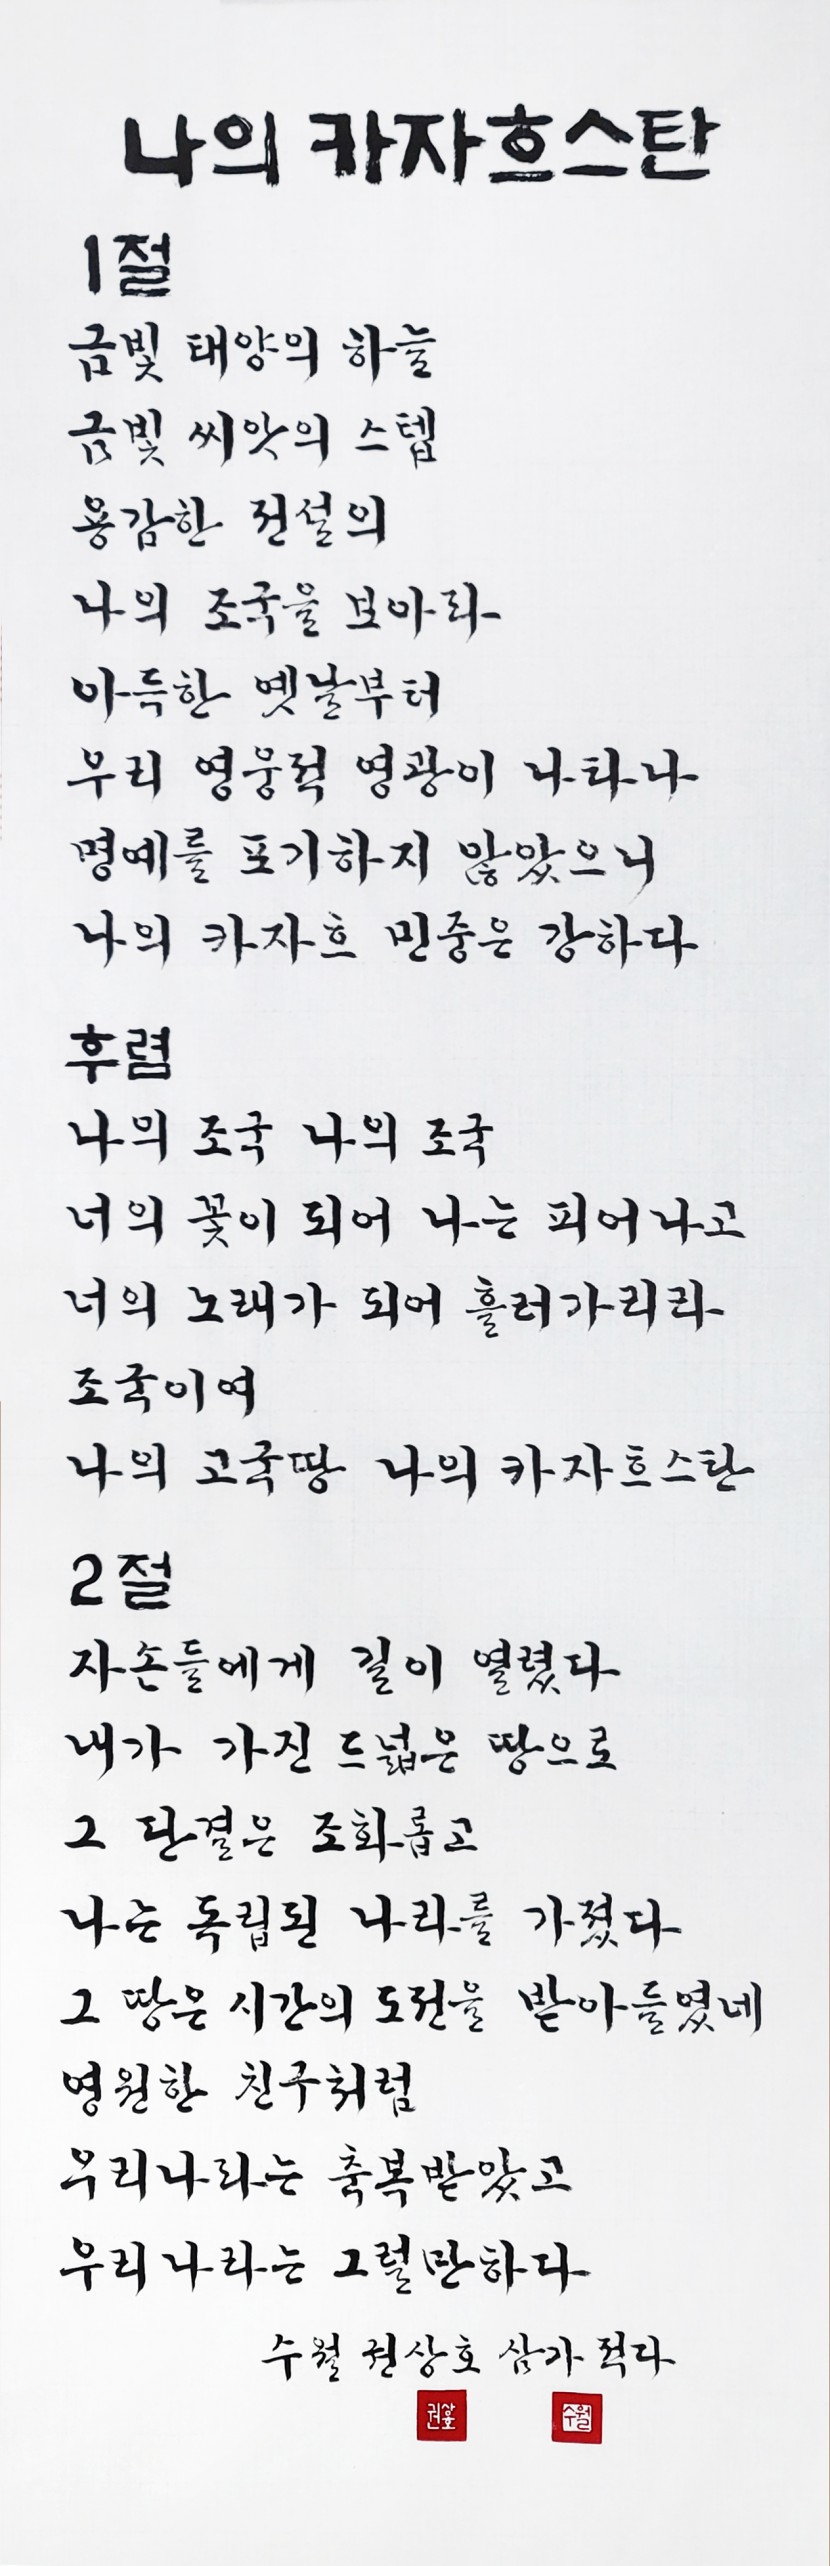 나의 카자흐스탄
1절
금빛 태양의 하늘
금빛 씨앗의 스텝
용감한 전설의
나의 조국을 보아라
아득한 옛날부터
우리 영웅적 영광이 나타나
명예를 포기하지 않았으니
나의 카자흐 민중은 강하다
후렴
나의 조국 나의 조국
너의 꽃이 되어 나는 피어나고
너의 노래가 되어 흘러가리라
조국이여
나의 고국땅 나의 카자흐스탄
2절
자손들에게 길이 열렸다
내가 가진 드넓은 땅으로
그 단결은 조화롭고
나는 독립된 나라를 가졌다
그 땅은 시간의 도전을 받아들였네
영원한 친구처럼
우리나라는 축복받았고
우리나라는 그럴만하다
수월 권상호 삼가 적다
권상호 수월